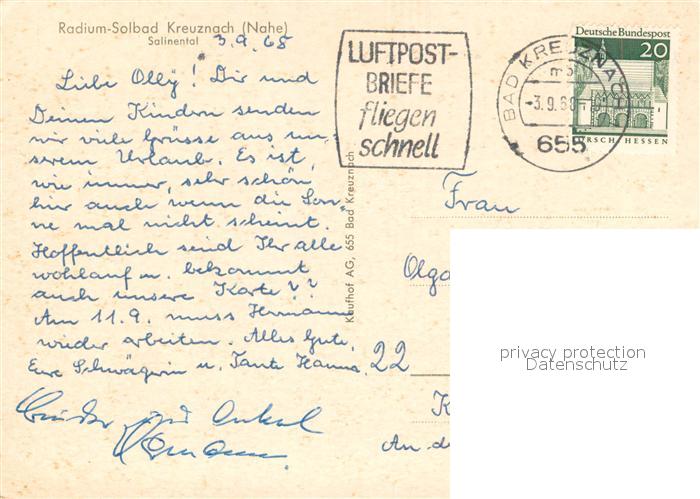 Radium-Solbad Kreuznach (Nahe)
Salinental
3.9.68
Liebe Olly! Dir und
Deinen Kindern senden
wir viele Grüsse aus un-
serem Urlaub. Es ist,
wie immer, sehr schön
hier auch wenn die Son-
ne mal nicht scheint.
Hoffentlich seid Ihr alle
wohlauf u. bekommt
auch unsere Karte??
Am 11.9. muss Hermann
wieder arbeiten. Alles Gute,
Eure Schwägerin u. Tante Hanna.
Bruder und Onkel
Hermann.
Kaufhof AG, 655 Bad Kreuznach
LUFTPOST-
BRIEFE
fliegen
schnell
BAD KREUZNACH
-3.9.68
655
Deutsche Bundespost
20
RSCH HESSEN
Frau
Olga
22
K
An d
privacy protection
Datenschutz